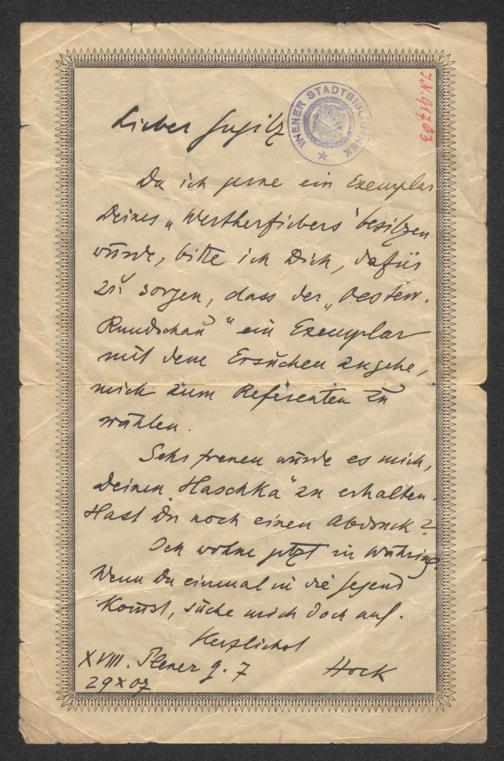 WIENER STADTBIBLIOTHEK
Lieber Gugitz
Da ich gerne ein Exemplar
Deines „Wertherfiebers" besitzen
würde, bitte ich Dich, dafür
zu sorgen, dass der „Oesterr.
Rundschau" ein Exemplar
mit dem Ersuchen zugehe,
mich zum Referenten zu
wählen.
Sehr freuen würde es mich,
Deinen „Haschka" zu erhalten.
Hast Du noch einen Abdruck?
Ich wohne jetzt in Währing.
Wenn Du einmal in die Gegend
kommst, suche mich doch auf.
Herzlichst
XVIII. Plener g. 7
Hock
29 X 07